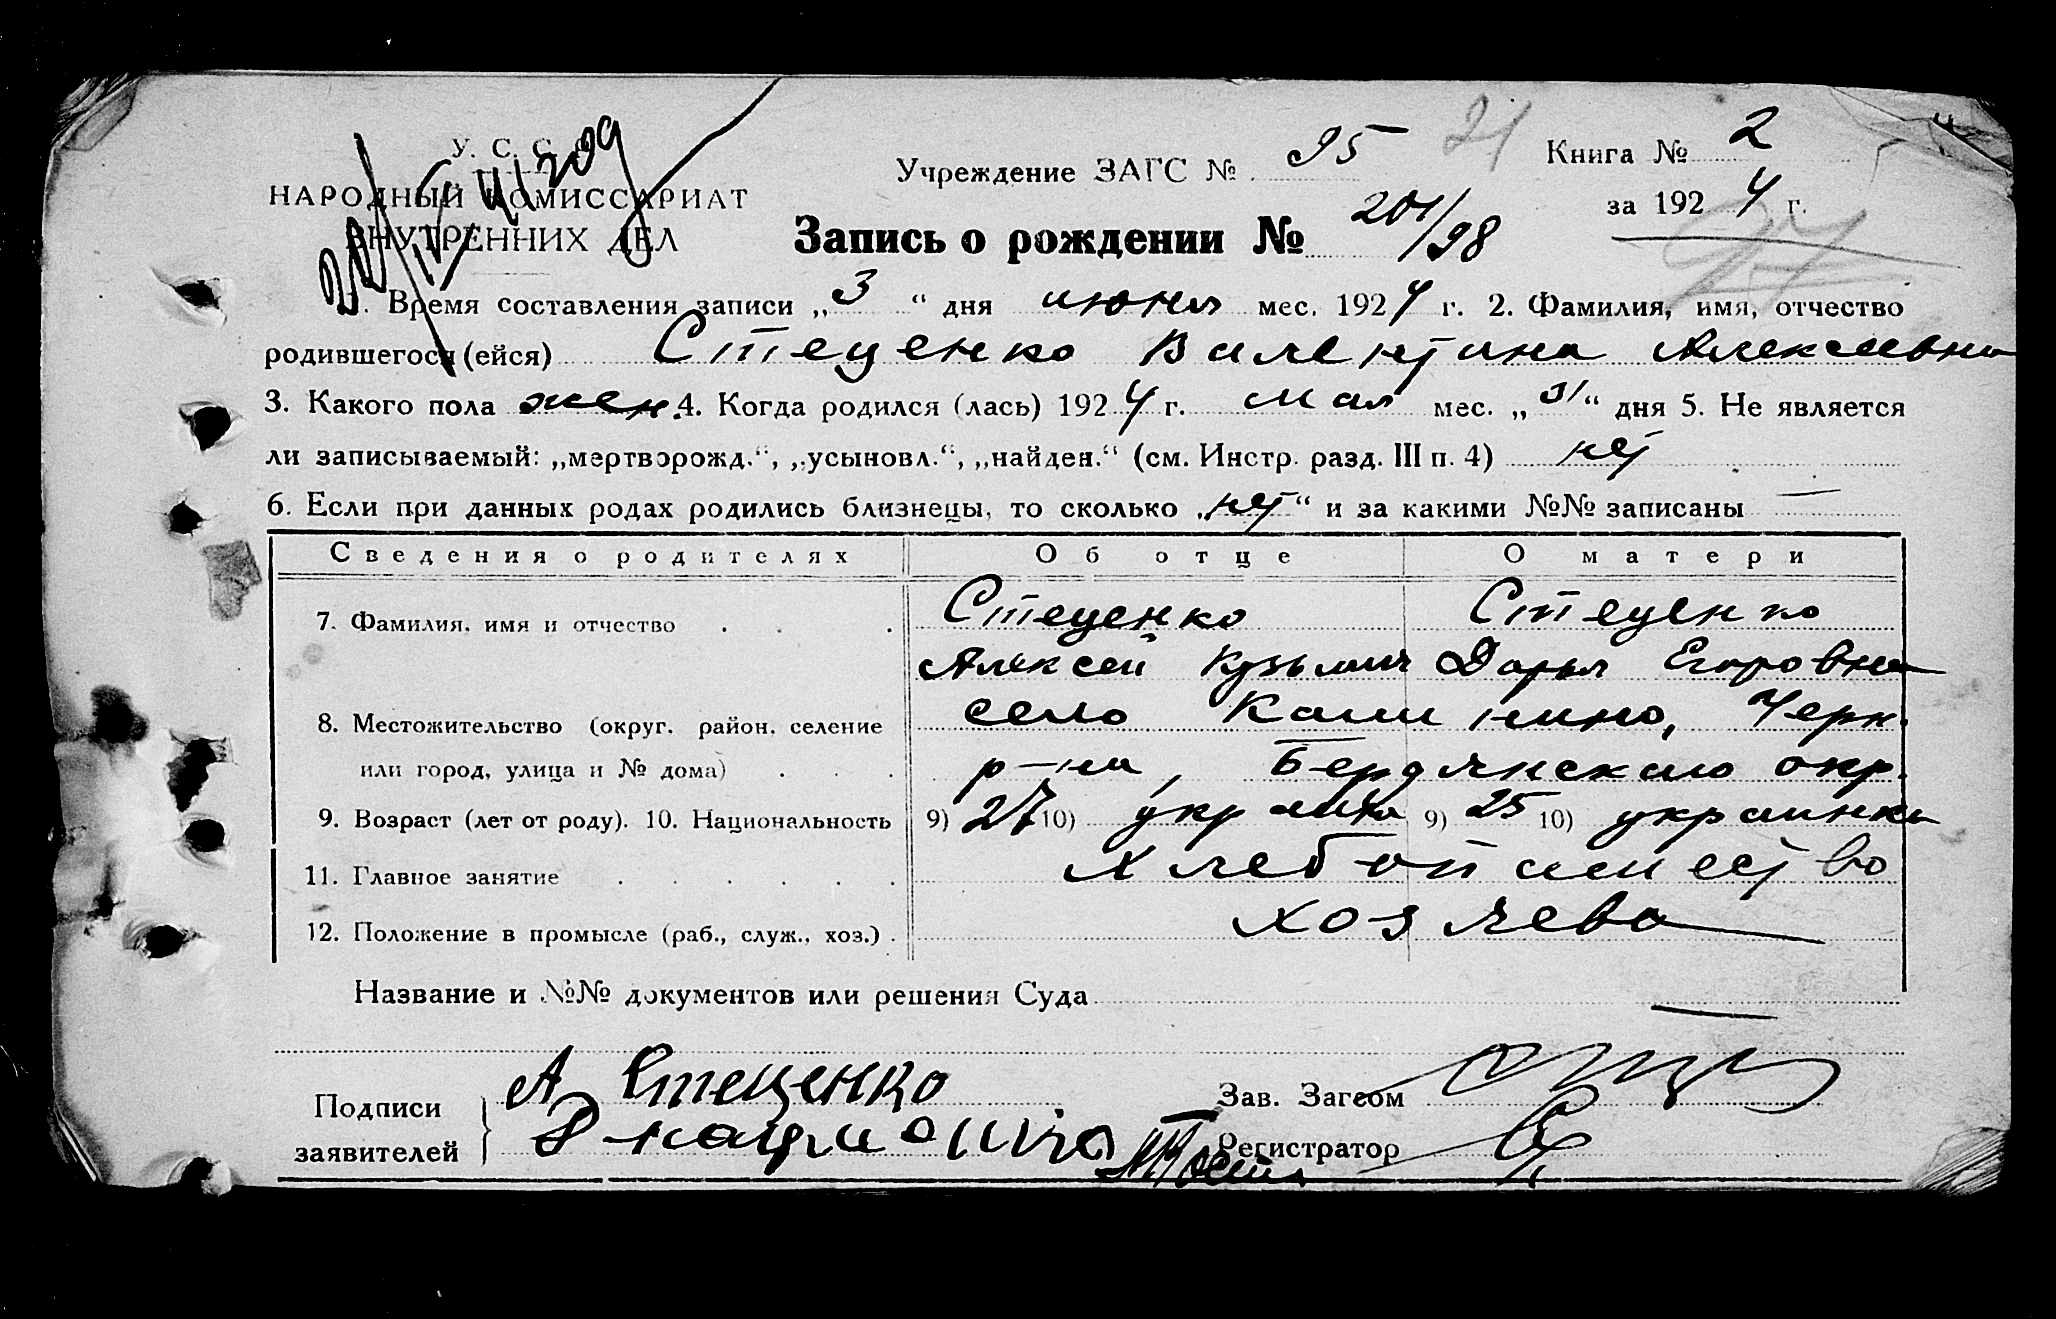 У. С. С. Р.
НАРОДНЫЙ КОМИССАРИАТ
ВНУТРЕННИХ ДЕЛ
Учреждение ЗАГС № 95 21
Книга № 2
за 1924 г.
Запись о рождении № 201/98
1. Время составления записи „3“ дня июня мес. 1924 г. 2. Фамилия, имя, отчество
родившегося (ейся) Стеценко Валентина Алексеевна
3. Какого пола жен. 4. Когда родился (лась) 1924 г. мая мес. „31“ дня 5. Не является
ли записываемый: „мертворожд.“, „усыновл.“, „найден.“ (см. Инстр. разд. III п. 4) нет
6. Если при данных родах родились близнецы, то сколько „нет“ и за какими №№ записаны —
Сведения о родителях Об отце О матери
7. Фамилия, имя и отчество . . . Стеценко Стеценко
Алексей Кузьмич Дарья Егоровна
8. Местожительство (округ, район, селение село Калинино, Черн.
или город, улица и № дома) . . . р-на, Бердянского окр.
9. Возраст (лет от роду). 10. Национальность 9) 27 10) укр 9) 25 10) украинка
11. Главное занятие . . . . . . Хлебопашество
12. Положение в промысле (раб., служ., хоз.) . хозяева
Название и №№ документов или решения Суда —
Подписи
заявителей
А Стеценко
Зав. Загсом
Регистратор